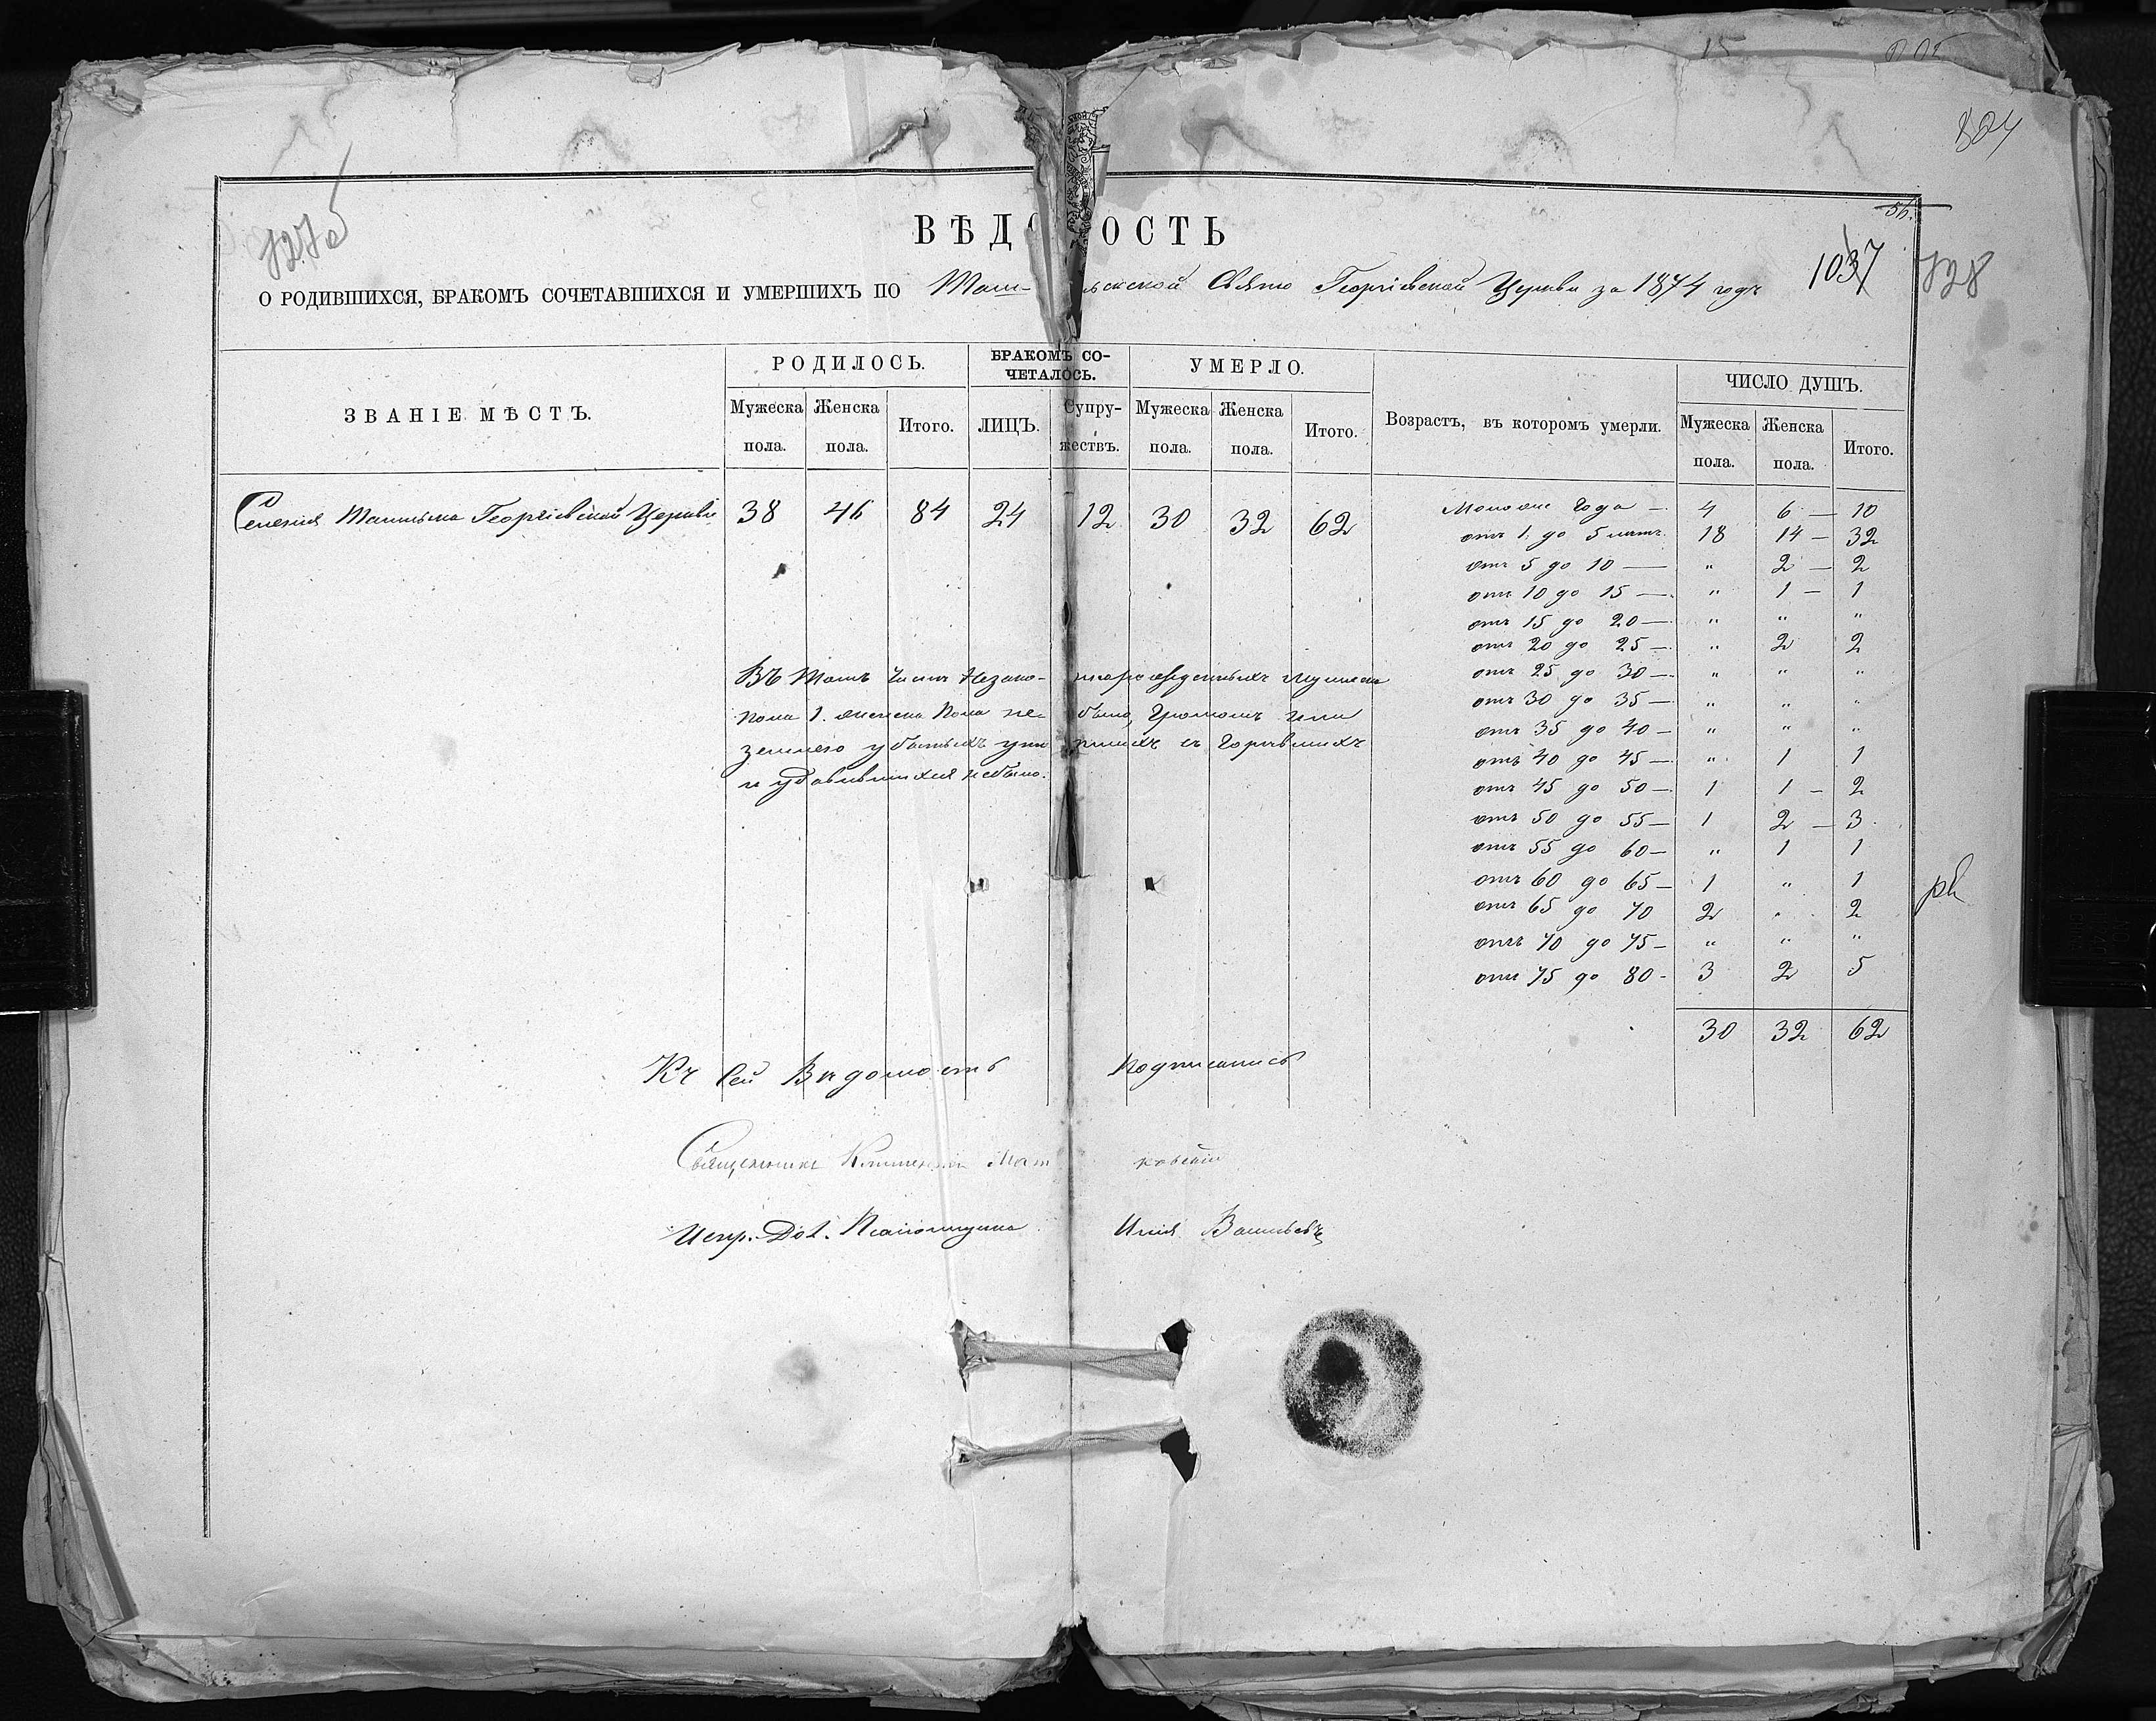 824
56.
727об
ВѢДОСТЬ
1037
728
О РОДИВШИХСЯ, БРАКОМЪ СОЧЕТАВШИХСЯ И УМЕРШИХЪ ПО Таш- льской Свято Георгіевской Церкви за 1874 годъ
ЗВАНІЕ МѢСТЪ. РОДИЛОСЬ. БРАКОМЪ СО-ЧЕТАЛОСЬ. УМЕРЛО. Возрастъ, въ которомъ умерли. ЧИСЛО ДУШЪ.
Мужеска пола. Женска пола. Итого. ЛИЦЪ. Супружествъ. Мужеска пола. Женска пола. Итого. Мужеска пола. Женска пола. Итого.
Селенія Георгіевской Церкви 38 46 84 24 12 30 32 62
Моложе Года — 4 6 — 10
отъ 1. до 5 лѣтъ. 18 14 — 32
отъ 5 до 10 — " 2 — 2
отъ 10 до 15 — " 1 — 1
отъ 15 до 20 — " " "
отъ 20 до 25 — " 2 2
отъ 25 до 30 — " " "
отъ 30 до 35 — " " "
отъ 35 до 40 — " " "
отъ 40 до 45 — " 1 1
отъ 45 до 50 — 1 1 — 2
отъ 50 до 55 — 1 2 — 3
отъ 55 до 60 — " 1 1
отъ 60 до 65 — 1 " 1
отъ 65 до 70 2 " 2
отъ 70 до 75 — " " "
отъ 75 до 80 - 3 2 5
30 32 62
Въ томъ числѣ Незако- норожденныхъ мужеска
пола 1. женска пола не было, громомъ или
убитыхъ и сгорѣвшихъ
и удавившихся небыло.
Къ сей Вѣдомость Подписались
Священникъ ковскій
Испр. Дол. Псаломщика Илія Васильевъ